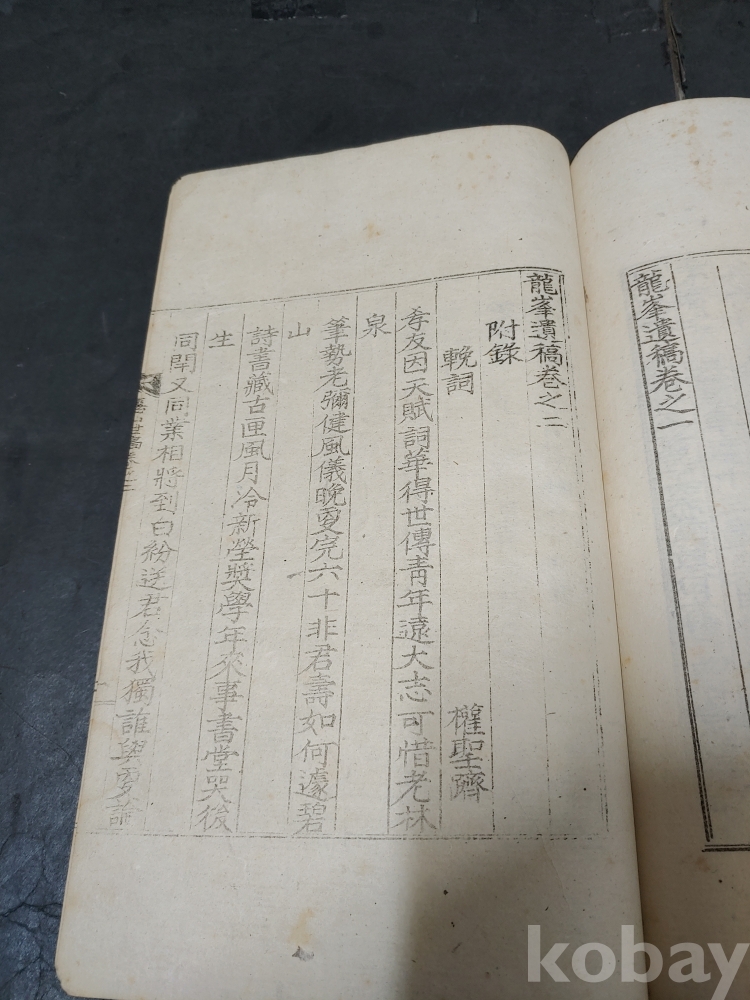 龍峯遺稿卷之一
龍峯遺稿卷之二
附錄
輓詞 權聖躋
孝友因天賦詞華得世傳靑年遠大志可惜老林
泉
筆勢老彌健風儀晩更完六十非君壽如何遽碧
山
詩書藏古匣風月冷新塋獎學年來事書堂哭後
生
同閈又同業相將到白紛送君念我獨誰與更論
kobay